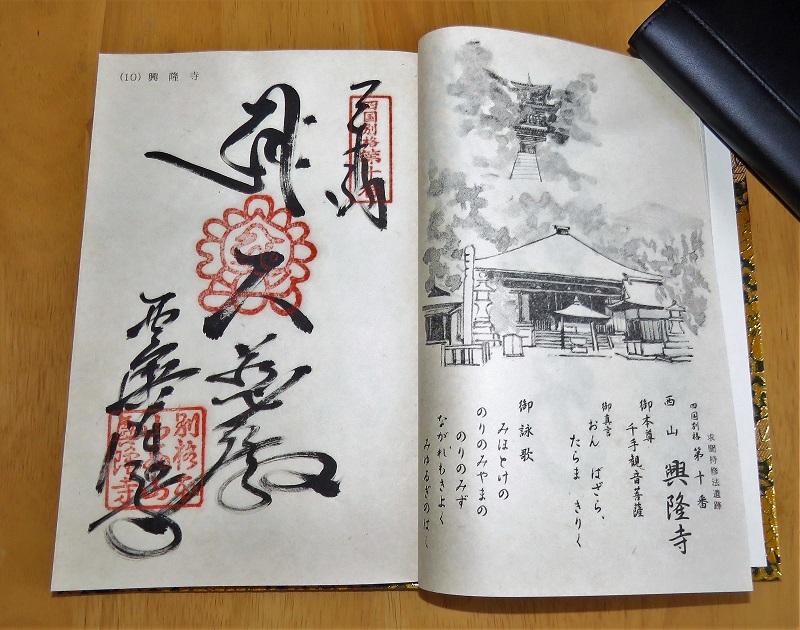 (10) 興隆寺
奉拝
四国別格第十番
大慈殿
西山興隆寺
別格
求聞持修法遺跡
四国別格 第十番
西山 興隆寺
御本尊
千手觀音菩薩
御真言
おん ばざら、
たらま きりく
御詠歌
みほとけの
のりのみやまの
のりのみず
ながれもきよく
みゆるぎのはし